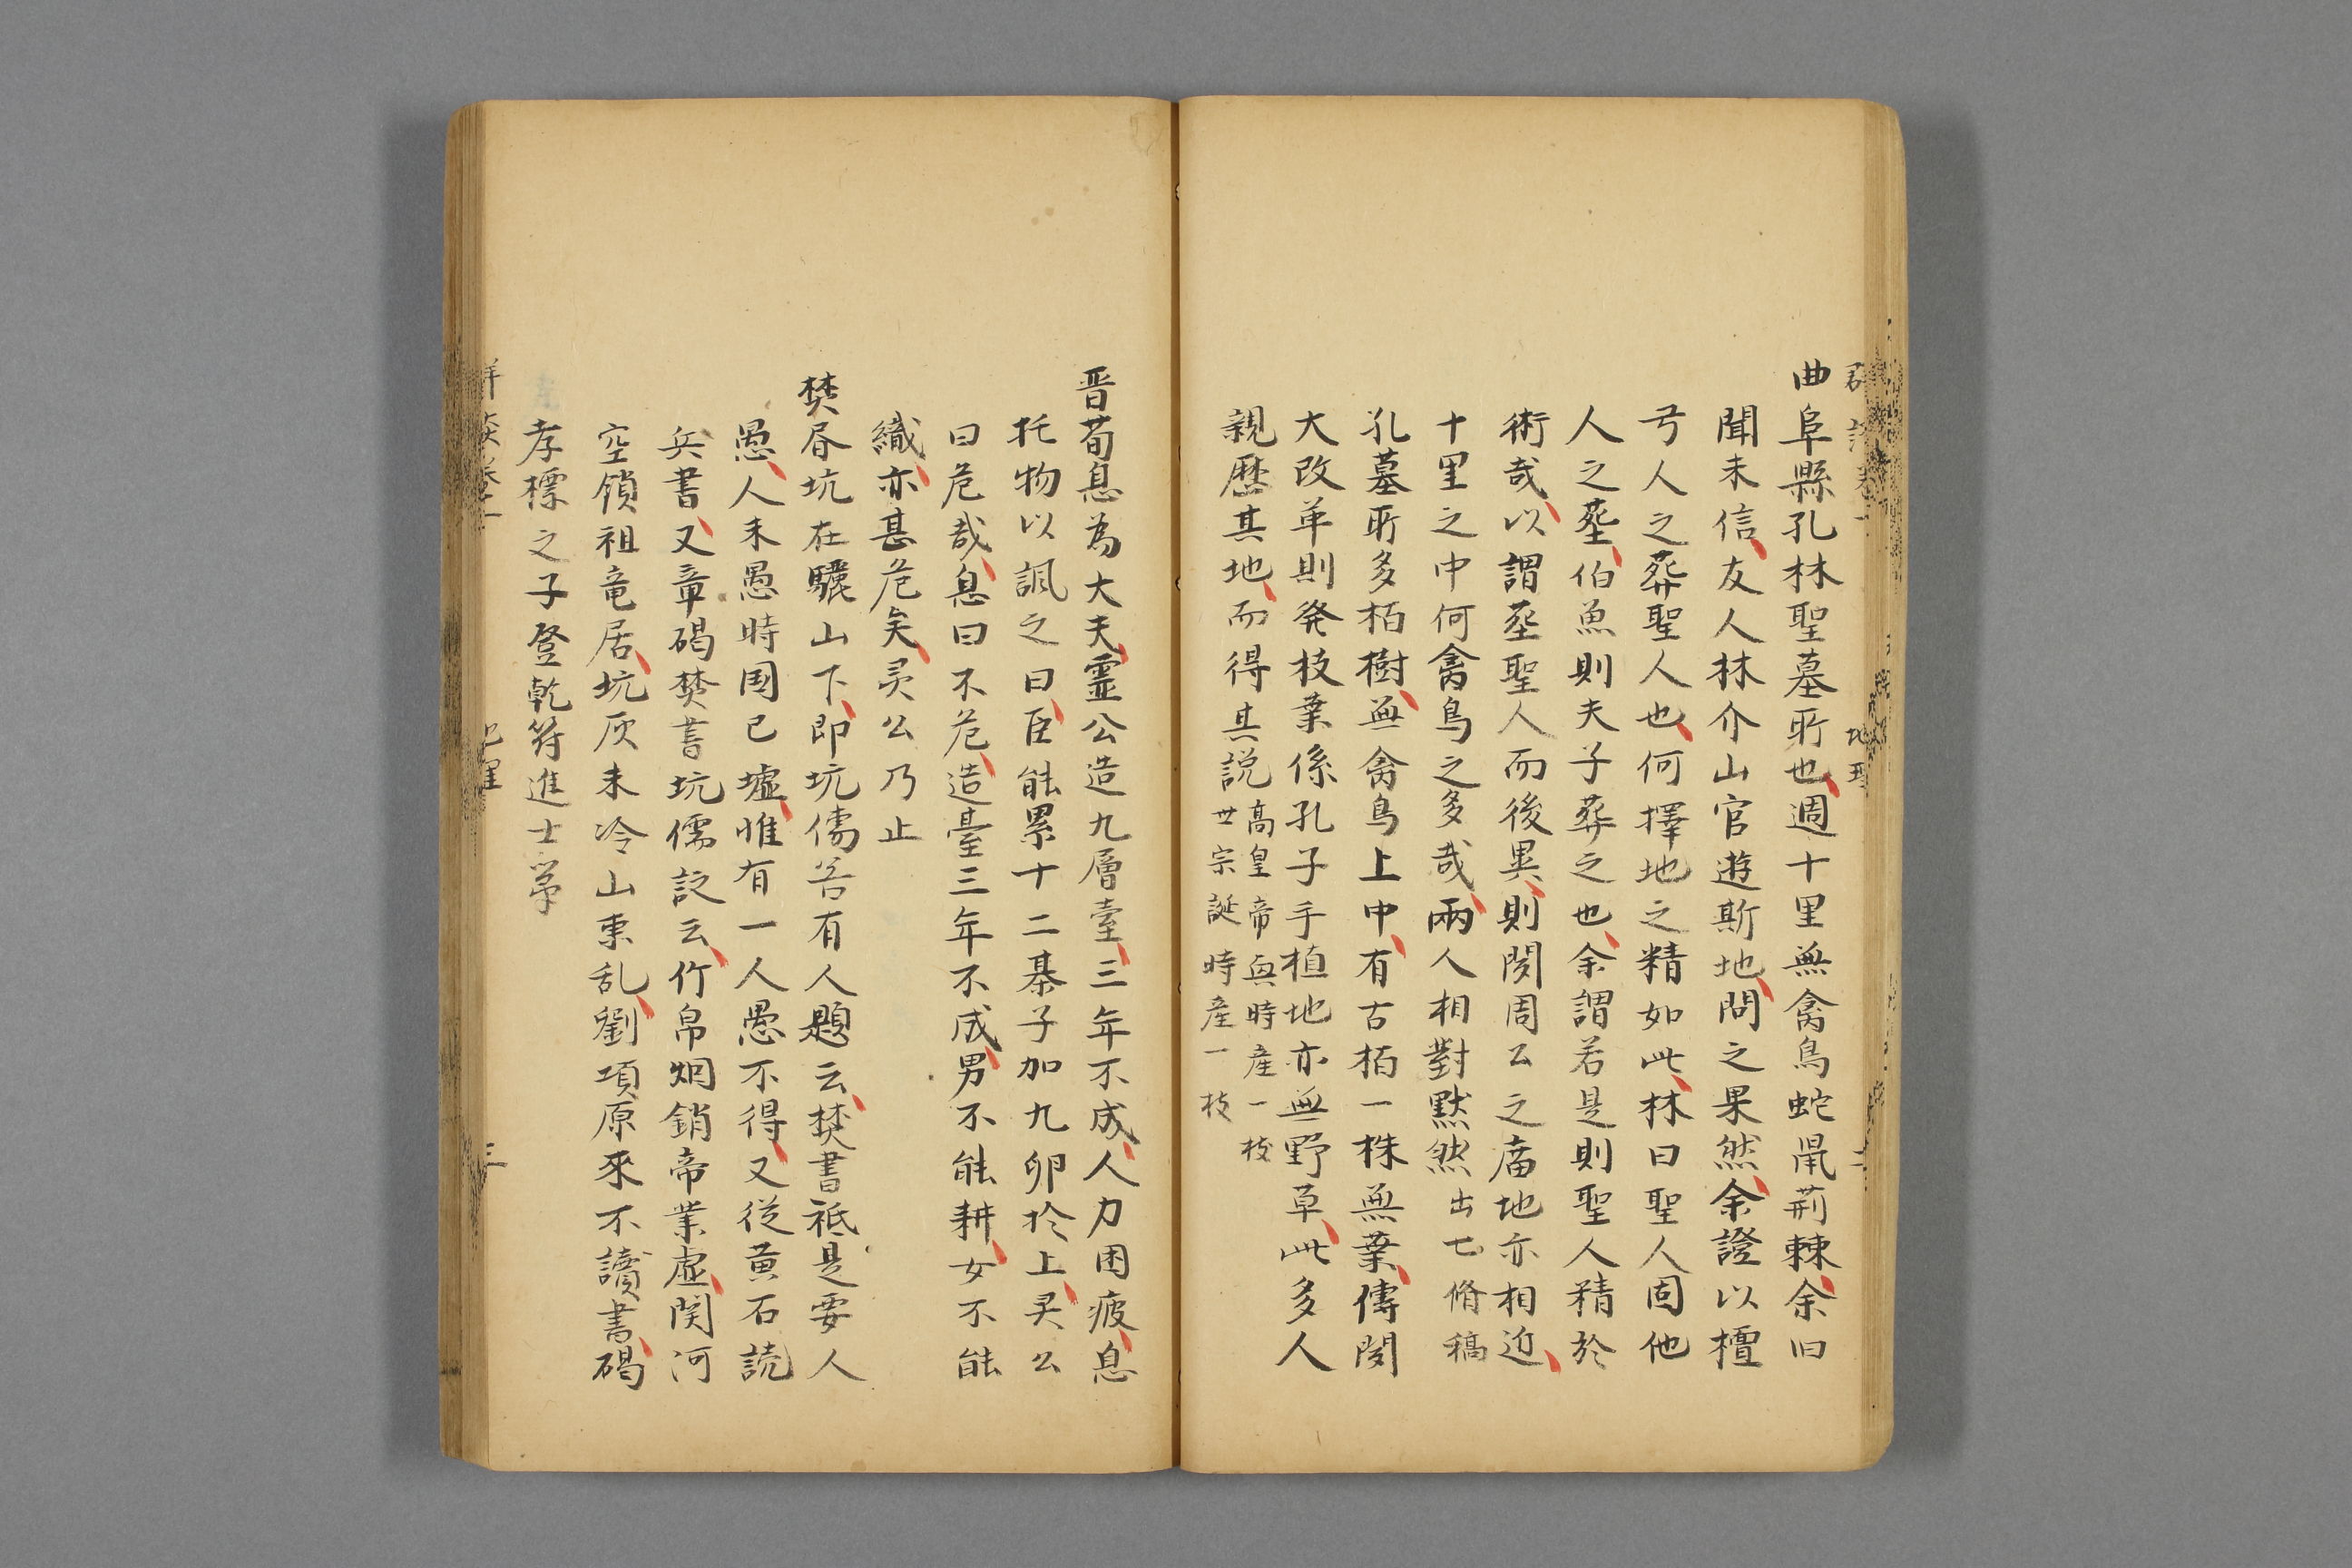 曲阜縣孔林聖墓所也週十里無禽鳥蛇鼠荊棘余旧
聞未信友人林介山官遊斯地問之果然余證以檀
弓人之葬聖人也何擇地之精如此林曰聖人固他
人之塟伯魚則夫子葬之也余謂若是則聖人精於
術哉以謂塟聖人而後異則閔周公之庙地亦相近
十里之中何禽鳥之多哉兩人相對默然出七脩稿
孔墓所多栢樹無禽鳥上中有古栢一株無葉傳聞
大改革則発枝葉係孔子手植地亦無野草此多人
親歴其地而得其説
高皇帝無時産一枝
世宗誕時産一枝
晋荀息為大夫靈公造九層臺三年不成人力困疲息
托物以諷之曰臣能累十二棊子加九卵於上灵公
曰危哉息曰不危造臺三年不成男不能耕女不能
織亦甚危矣灵公乃止
焚昏坑在驪山下即坑儒谷有人題云焚書祗是要人
愚人未愚時国已墟惟有一人愚不得又従黄石読
兵書又章碣焚書坑儒詩云竹帛烟銷帝業虛関河
空鎖祖竜居坑灰未冷山東乱劉項原來不讀書碣
孝標之子登乾符進士第